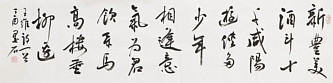 新豐美
酒斗十
千咸陽
遊俠多
少年
相逢意
氣為君
飲系馬
高樓垂
柳邊
王維詩一首